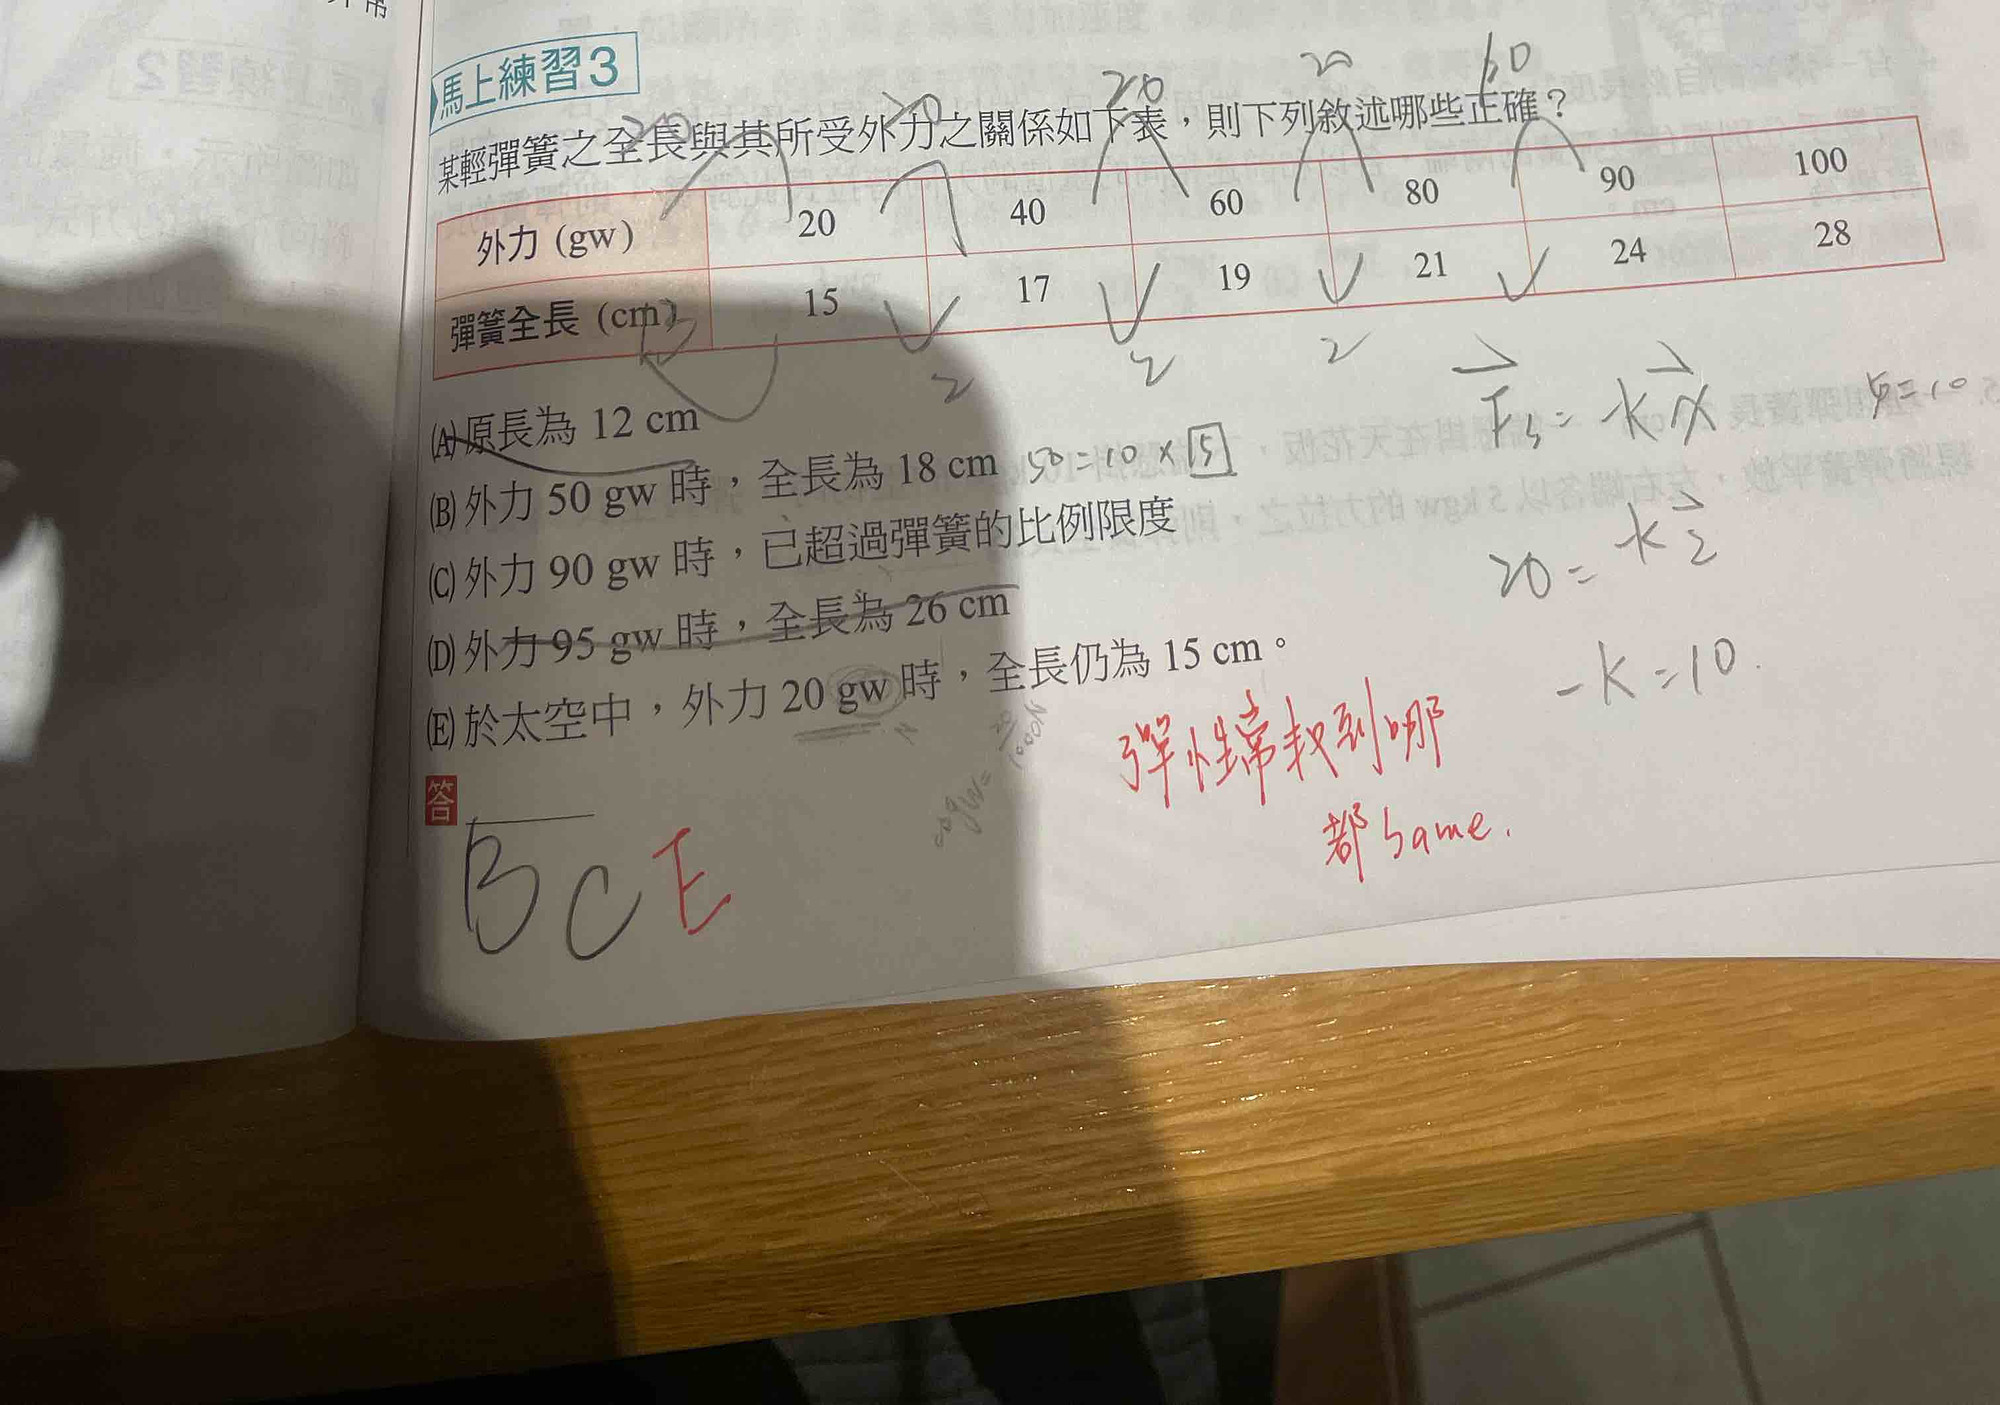 馬上練習3
某輕彈簧之全長與其所受外力之關係如下表，則下列敘述哪些正確？
20 20 20 60
外力 (gw) 20 40 60 80 90 100
彈簧全長 (cm) 15 17 19 21 24 28
13
2 2 2
(A)原長為 12 cm
(B)外力 50 gw 時，全長為 18 cm 50=10×5
(C)外力 90 gw 時，已超過彈簧的比例限度
(D)外力 95 gw 時，全長為 26 cm
(E)於太空中，外力 20 gw 時，全長仍為 15 cm。
N
Fs = -kx
5=10
20= k2
-k=10.
彈性常數到哪
都 same.
答
BCE